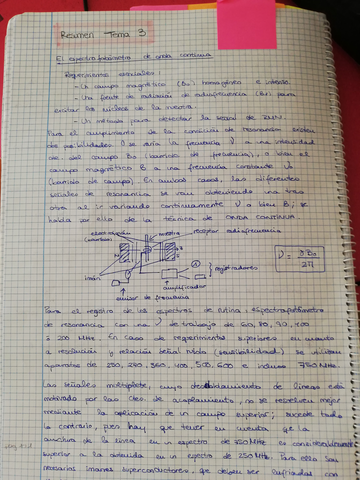 Resumen Tema 3
El espectrofotómetro de onda continua
Requerimientos esenciales:
- Un campo magnético (B₀) homogéneo e intenso.
- Una fuente de radiación de radiofrecuencia (Br) para
excitar los núcleos de la muestra.
- Un método para detectar la señal de RMN.
Para el cumplimiento de la condición de resonancia existen
dos posibilidades: O se varía la frecuencia ν a una intensidad
cte. del campo B₀ (barrido de frecuencia), o bien el
campo magnético B a una frecuencia constante ν₀
(barrido de campo). En ambos casos, las diferentes
señales de resonancia se van obteniendo una tras
otra al ir variando continuamente ν o bien B; se
habla por ello de la técnica de ONDA CONTINUA.
electroimán muestra receptor radiofrecuencia
imán
registradores
amplificador
emisor de frecuencia
ν = γB₀ / 2π
Para el registro de los espectros de rutina, espectrofotómetro
de resonancia con una ν de trabajo de 60, 80, 90, 100
ó 200 MHz. En caso de requerimientos superiores en cuanto
a resolución y relación señal ruido (sensibilidad) se utilizan
aparatos de 250, 270, 360, 400, 500, 600 e incluso 750 MHz.
Las señales múltiplete, cuyo desdoblamiento de líneas está
motivado por las ctes. de acoplamiento, no se resuelven mejor
mediante la aplicación de un campo superior; sucede todo
lo contrario, pues hay que tener en cuenta que la
anchura de la línea en un espectro de 750 MHz es considerablemente
superior a la obtenida en un espectro de 250 MHz. Para ello son
necesarios imanes superconductores, que deben ser enfriados con